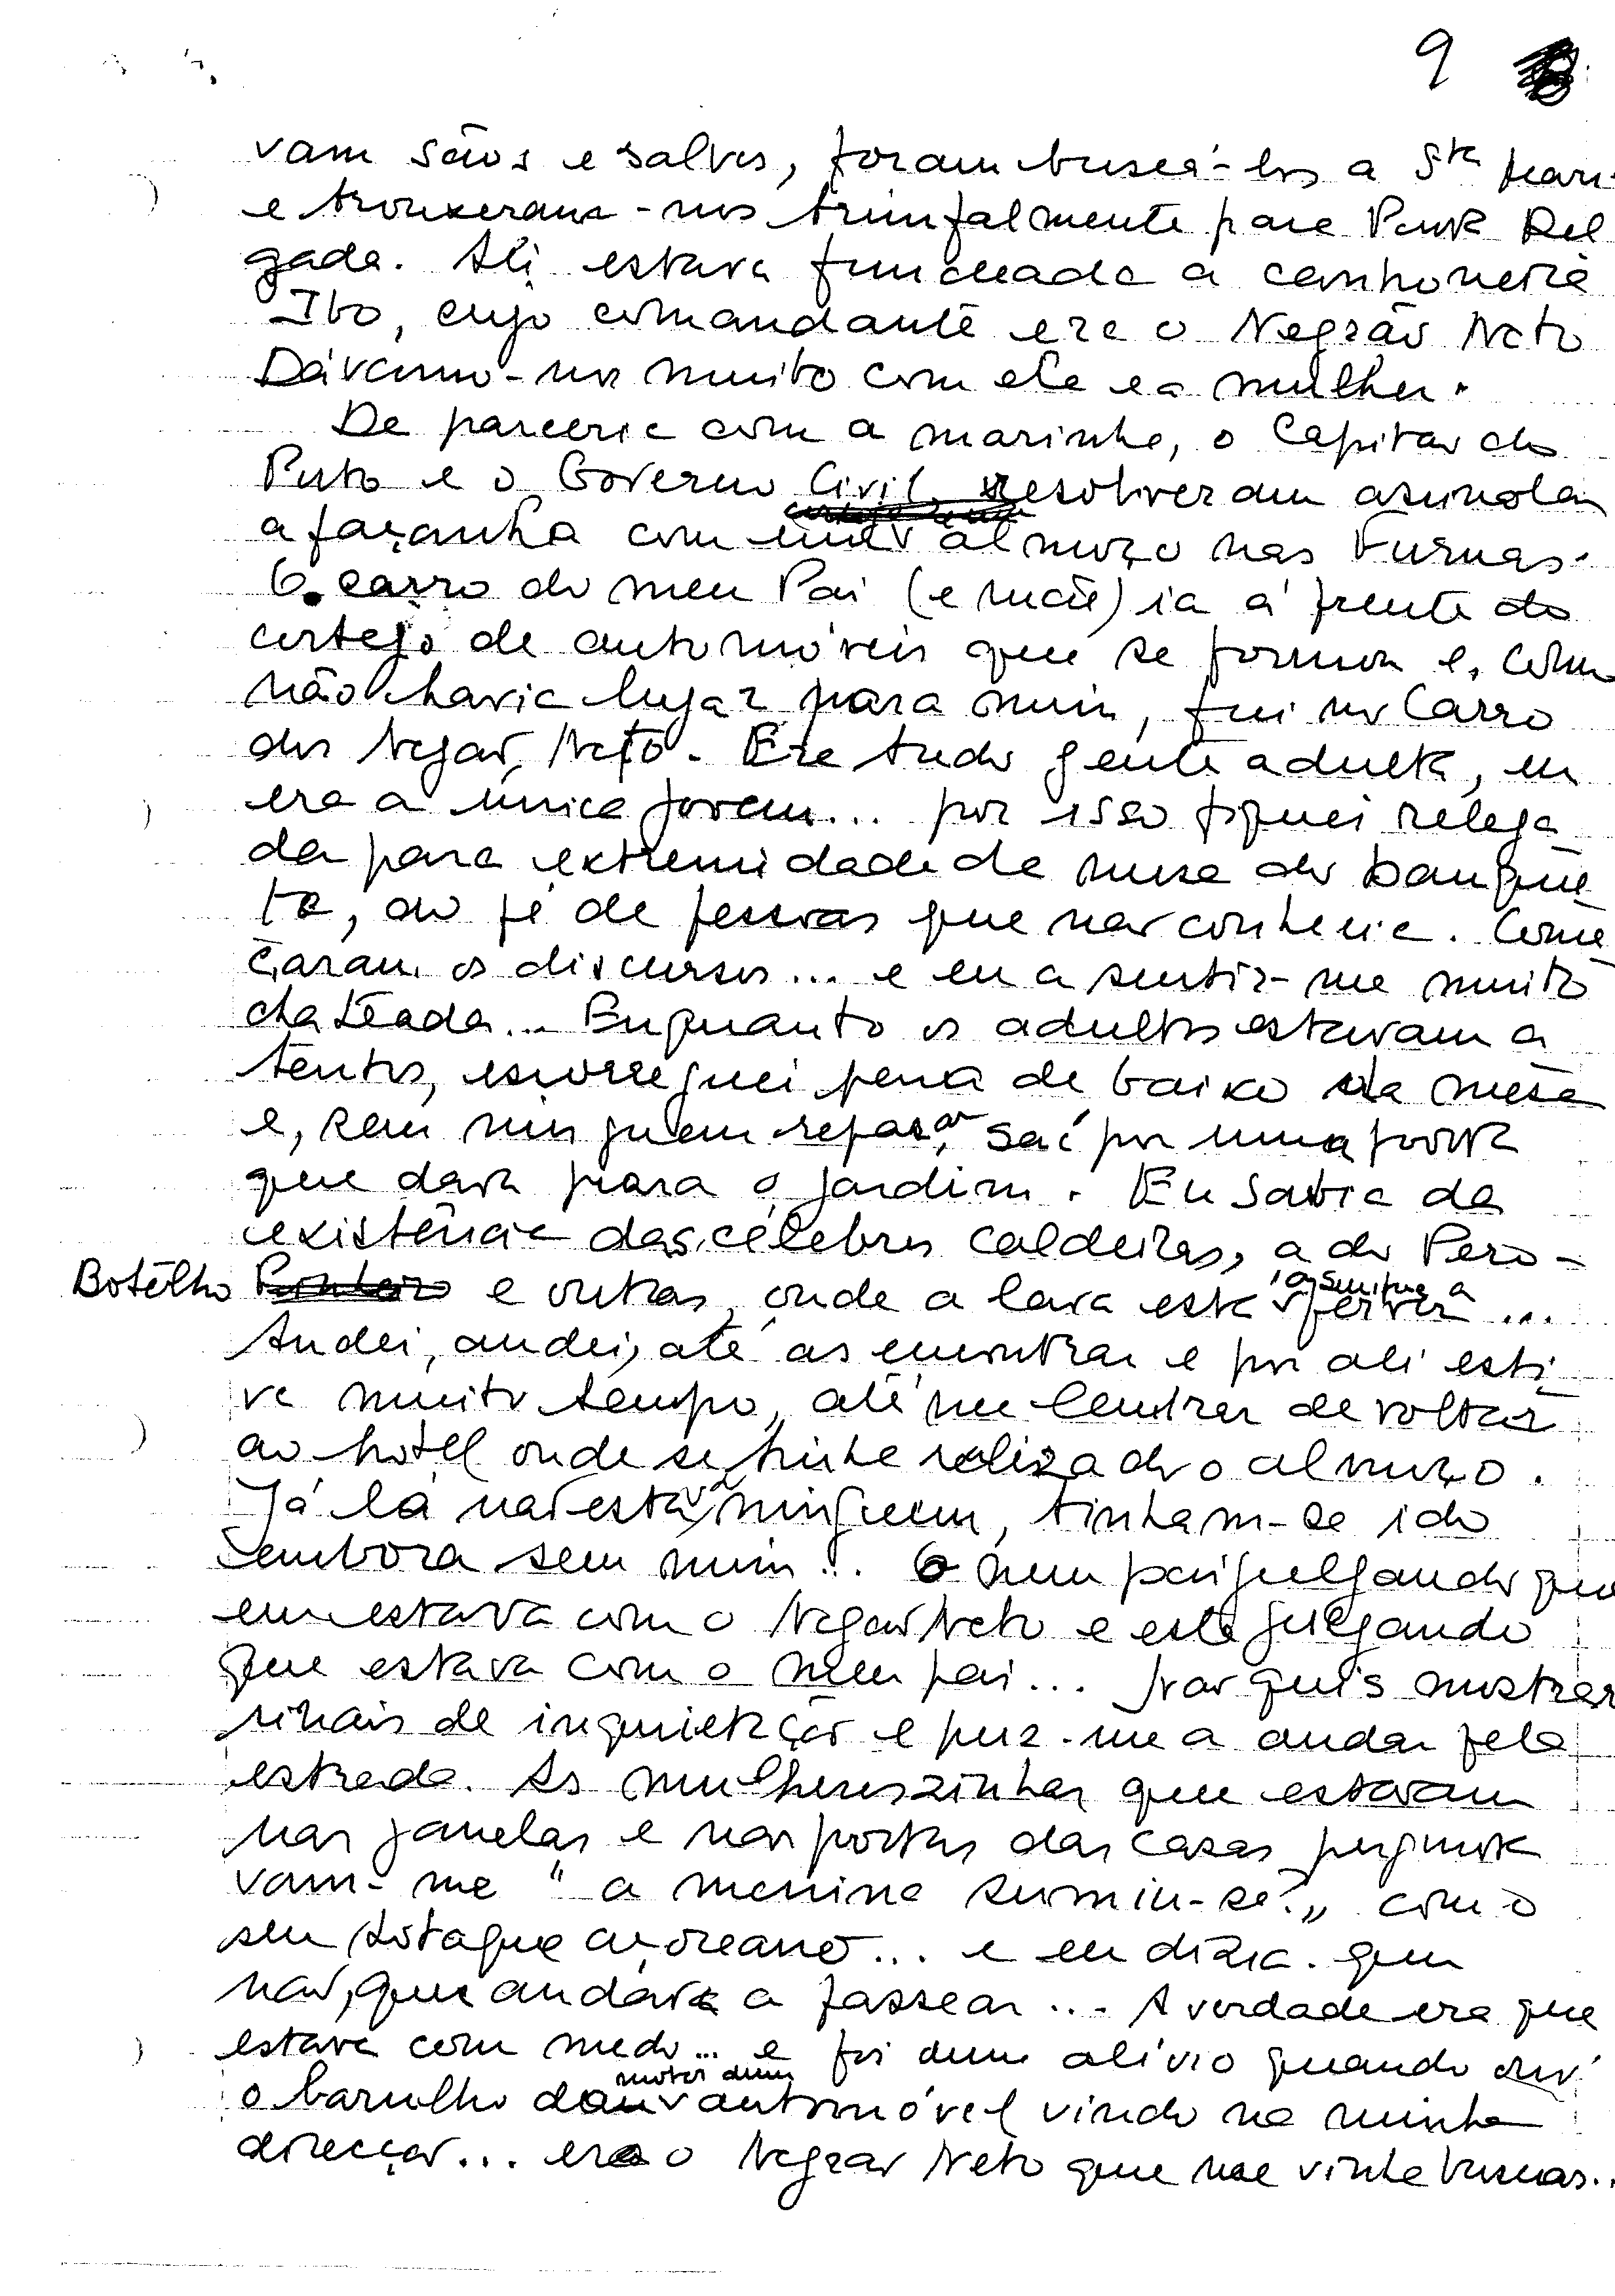 9
vam sãos e salvos, foram buscá-los a Stª Mari
e trouxeram-nos triunfalmente para Ponta Del
gada. Ali estava fundeada a canhoneira
Ibo, cujo comandante era o Negrão Neto
Dávamo-nos muito com ele e a mulher.
De parceria com a marinha, o Capitão do
Porto e o Governo Civil resolveram assinalar
a façanha com um almoço nas Furnas.
O carro do meu Pai (e mãe) ia à frente do
cortejo de automóveis que se formou e, como
não havia lugar para mim, fui no carro
dos Negrão Neto. Era tudo gente adulta, eu
era a única jovem... por isso fiquei relega
da para extremidade da mesa do banque
te, ao pé de pessoas que não conhecia. Come
çaram os discursos... e eu a sentir-me muito
chateada... Enquanto os adultos estavam a
tentos, escorreguei para de baixo da mesa
e, sem ninguem reparar, saí por uma porta
que dava para o jardim. Eu sabia da
existência das célebres caldeiras, a do Pero-
Botelho e outras, onde a lava está sempre a ferver ...
Andei, andei, até as encontrar e por ali esti
ve muito tempo, até me lembrar de voltar
ao hotel onde se tinha realizado o almoço.
Já lá não estava ninguem, tinham-se ido
embora sem mim... O meu pai julgando que
eu estava com o Negrão Neto e este julgando
que estava com o meu pai... Não quis mostrar
sinais de inquietação e puz-me a andar pela
estrada. As mulheresinhas que estavam
nas janelas e nas portas das casas pergunta
vam-me "a menina sumiu-se?" com o
seu sotaque açoreano... e eu dizia que
não, que andava a passear... A verdade era que
estava com medo... e foi dum alívio quando ouvi
o barulho do motor dum automóvel vindo na minha
direcção... era o Negrão Neto que me vinha buscar..